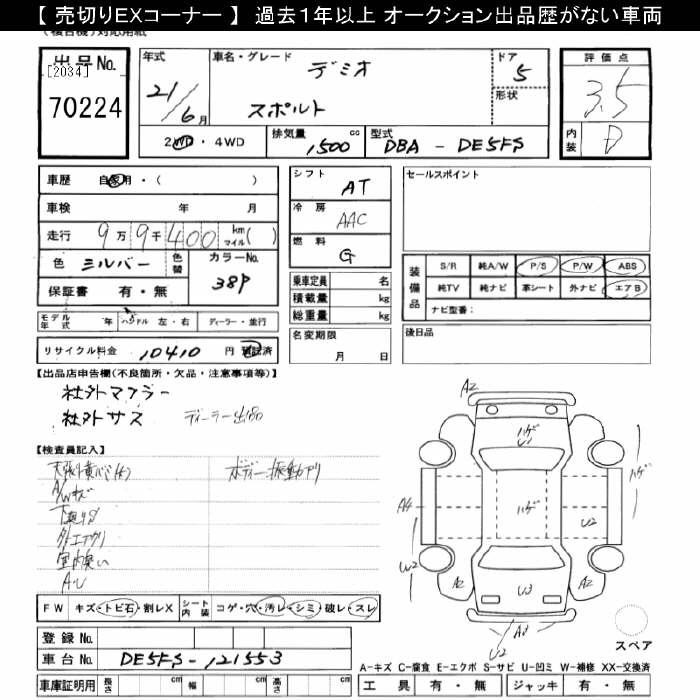 【 売切りEXコーナー 】 過去1年以上 オークション出品歴がない車両
出品No.
[2034]
70224
年式
21/6月
車名・グレード
デミオ
スポルト
ドア
5
形状
評価点
3.5
内装
D
2WD・4WD
排気量
1500 cc
型式
DBA - DE5FS
車歴 自家用・( )
車検 年 月
走行 9万9千400 km マイル( )
色 シルバー 色替
カラーNo.
38P
保証書 有・無
モデル年式 年 ハンドル 左・右 ディーラー・並行
リサイクル料金 10410 円 預託済
シフト
AT
冷房
AAC
燃料
G
乗車定員 名
積載量 kg
総重量 kg
名変期限
月 日
セールスポイント
装備品
S/R 純A/W P/S P/W ABS
純TV 純ナビ 革シート 外ナビ エアB
ナビ型番:
後日品
【出品店申告欄(不良箇所・欠品・注意事項等)】
社外マフラー
社外サス ディーラー
【検査員記入】
A/Wキズ
下廻りサビ
外エアクリ
室内臭い
ボディー振動アリ
FW キズ・トビ石・割レX
シート内装 コゲ・穴・汚レ・シミ・破レ・スレ
登録No.
車台No. DE5FS-121553
車庫証明用 長さ cm 幅 cm 高さ cm
A2
ハゲ
U1
ハゲ
ハゲ
A4
U2
W2
A2
U3
A2
A3
U2
スペア
A-キズ C-腐食 E-エクボ S-サビ U-凹ミ W-補修 XX-交換済
工具 有・無 ジャッキ 有・無